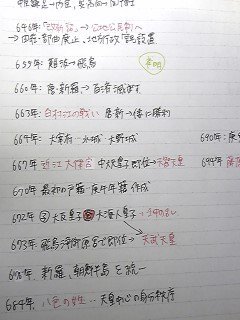 646年:「改新の詔」→公地公民制へ
→田荘・部曲廃止、地方行政
655年: 難波→飛鳥
660年: 唐・新羅→百済滅ぼす
663年: 白村江の戦い 唐・新→倭に勝利
664年: 大宰府 水城・大野城
667年 近江大津宮 中大兄即位→天智天皇
670年 最初の戸籍 庚午年籍 作成
672年 大友皇子 大海人皇子
673年 飛鳥浄御原宮で即位→天武天皇
676年 新羅、朝鮮半島を統一
684年: 八色の姓‥天皇中心の身分秩序
690年:
694年